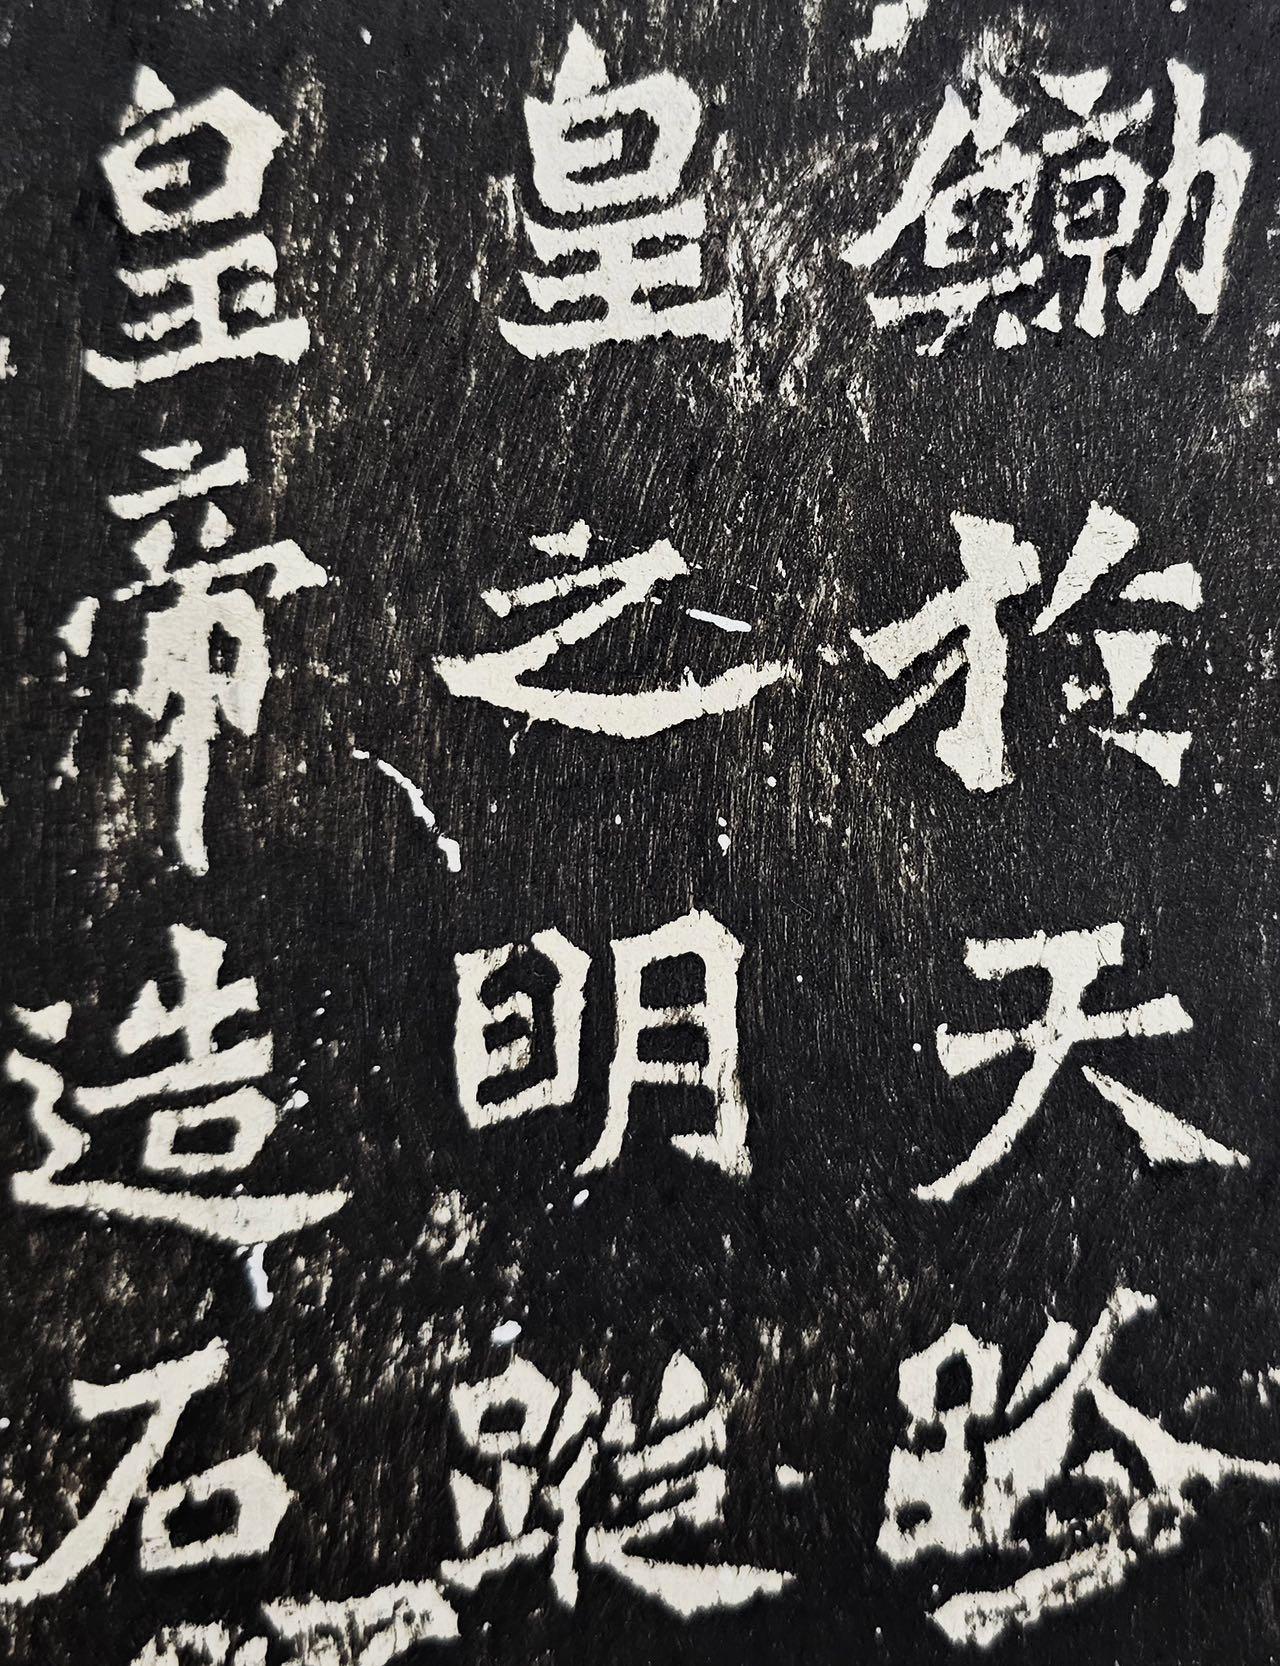 鯨於天路
皇之明蹤
皇帝造石